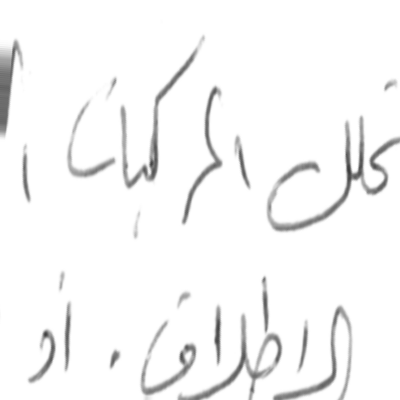 تحلل المركبات ا
الاطلاق . أو